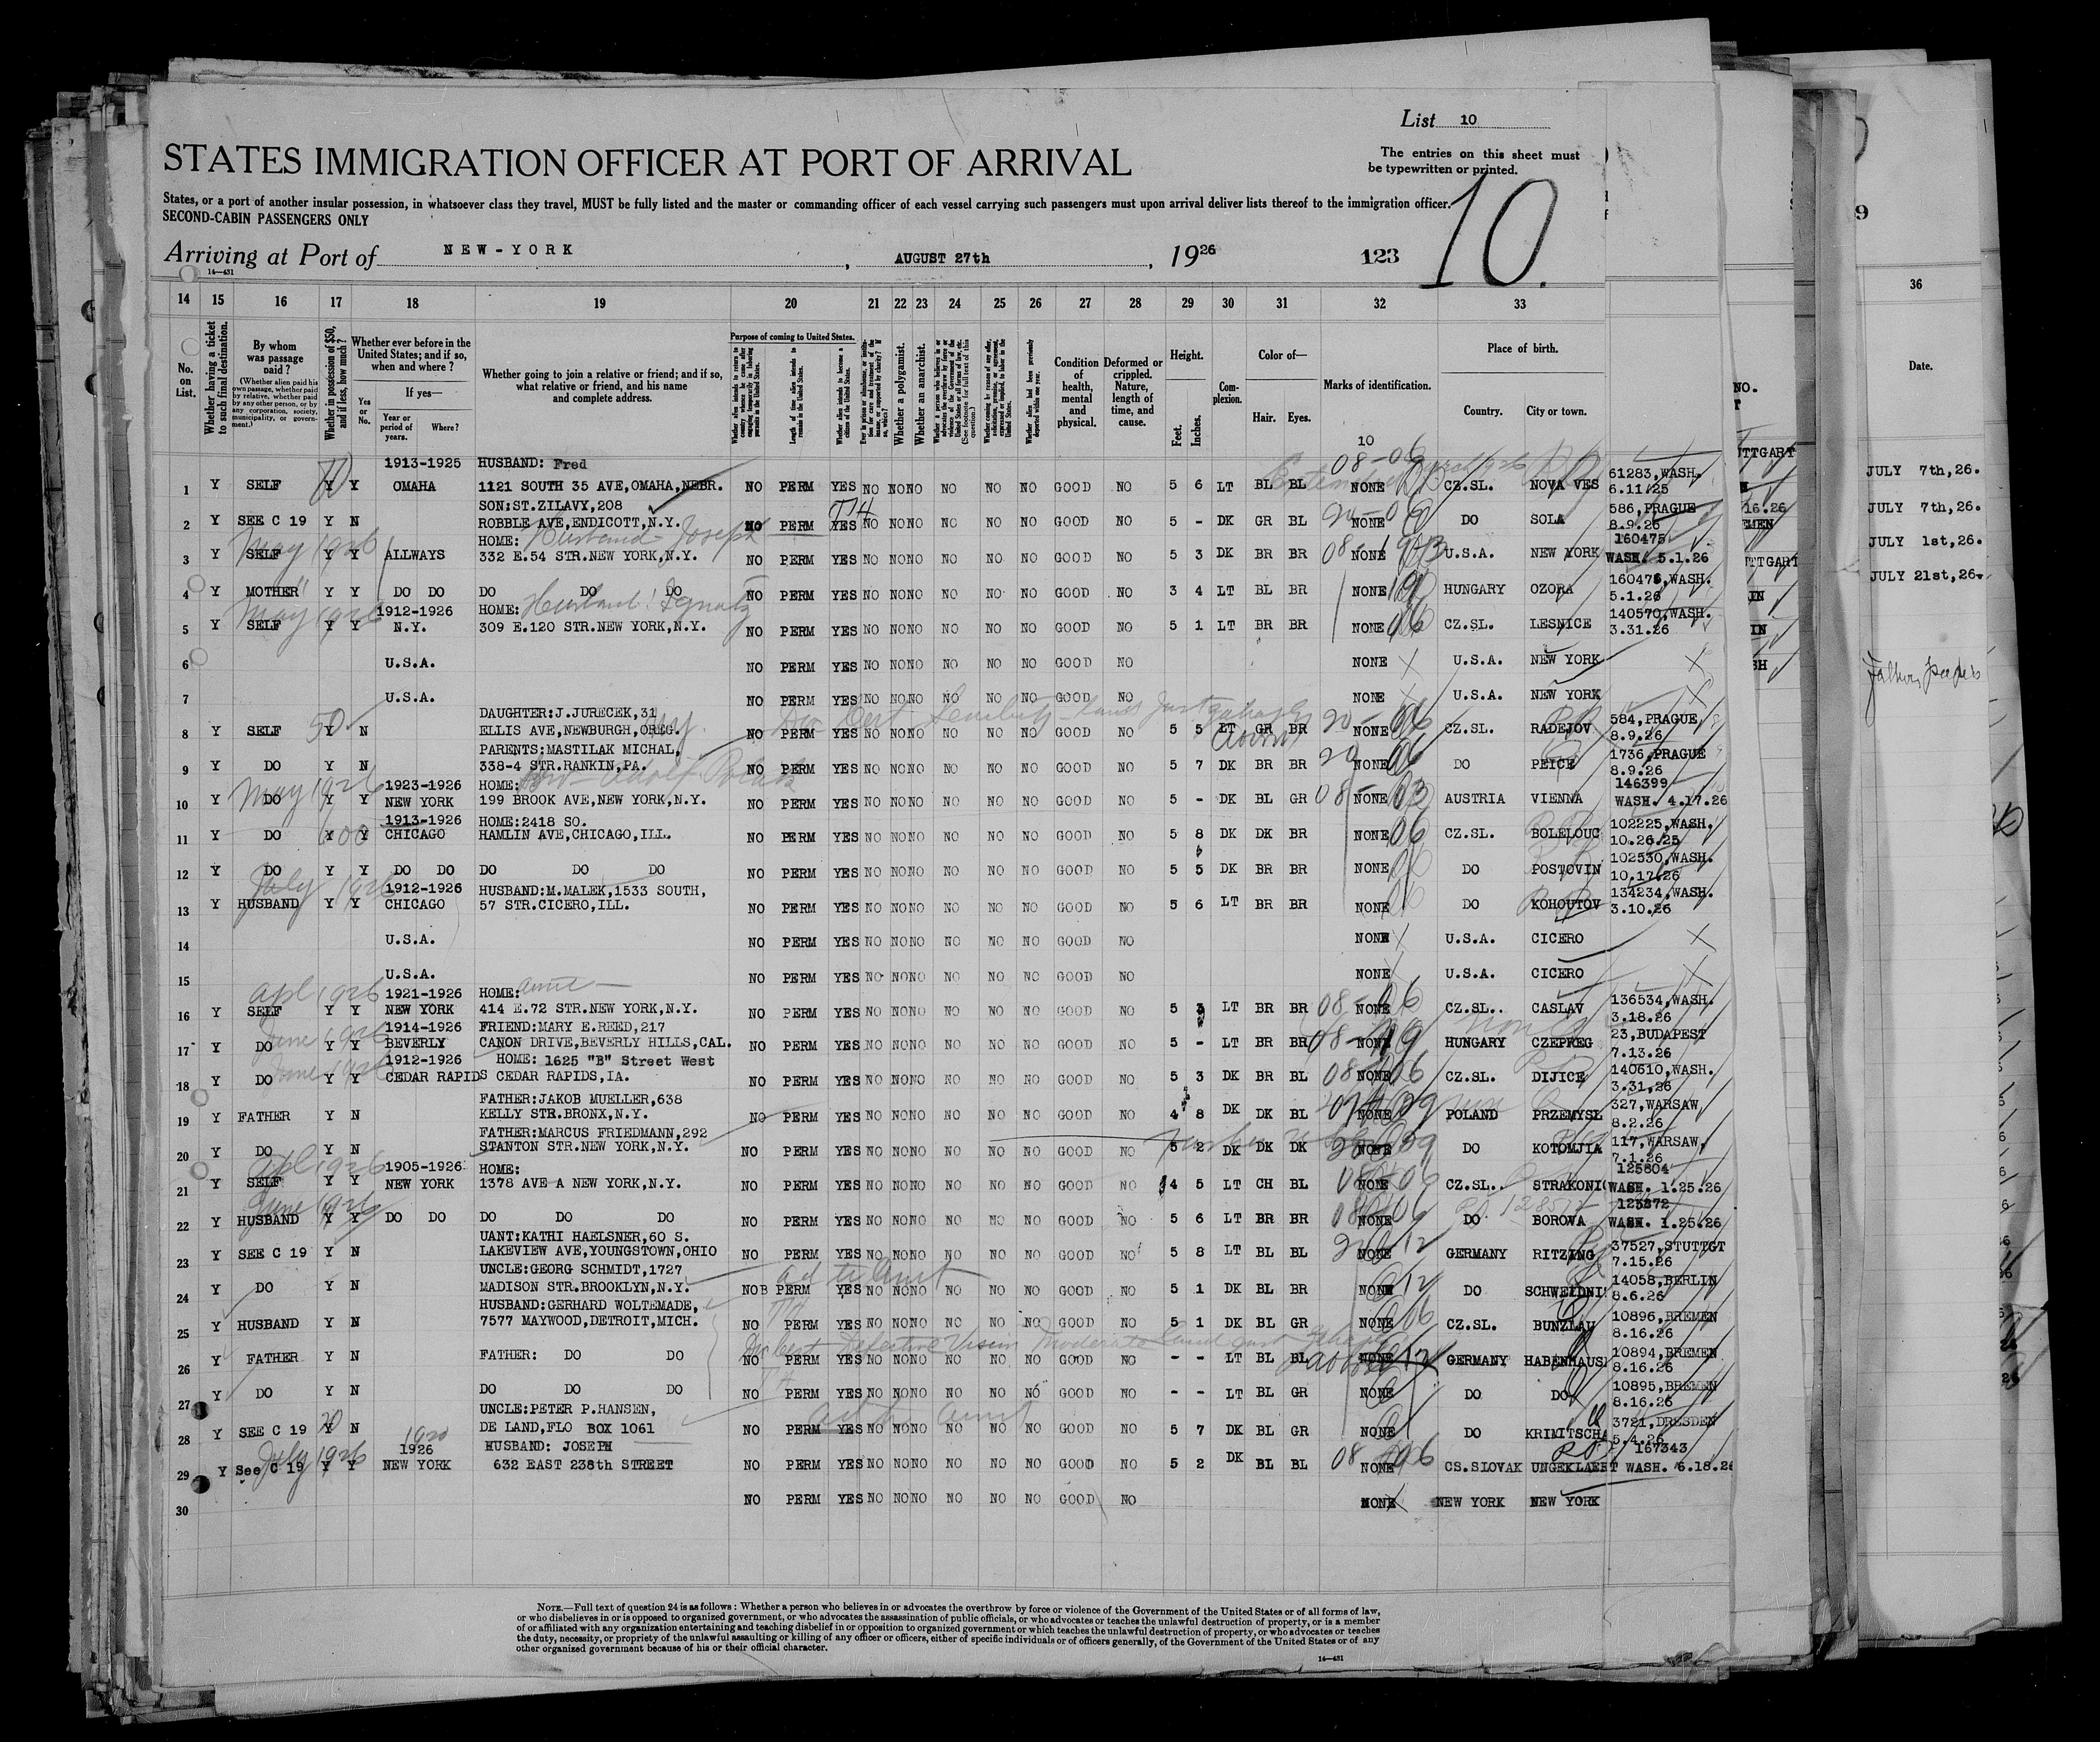 List 10
STATES IMMIGRATION OFFICER AT PORT OF ARRIVAL
The entries on this sheet must
be typewritten or printed.
States, or a port of another insular possession, in whatsoever class they travel, MUST be fully listed and the master or commanding officer of each vessel carrying such passengers must upon arrival deliver lists thereof to the immigration officer.
SECOND-CABIN PASSENGERS ONLY
10.
Arriving at Port of NEW-YORK, AUGUST 27th, 1926 123
14—431
14 15 16 17 18 19 20 21 22 23 24 25 26 27 28 29 30 31 32 33
No. on List.
Whether having a ticket to such final destination.
By whom was passage paid?
(Whether alien paid his own passage, whether paid by relative, whether paid by any other person, or by any corporation, society, municipality, or government.)
Whether in possession of $50, and if less, how much?
Whether ever before in the United States; and if so, when and where?
If yes—
Yes or No.
Year or period of years.
Where?
Whether going to join a relative or friend; and if so, what relative or friend, and his name and complete address.
Purpose of coming to United States.
Length of time alien intends to remain in the United States.
Whether alien intends to become a citizen of the United States.
Whether a polygamist.
Whether an anarchist.
Condition of health, mental and physical.
Deformed or crippled. Nature, length of time, and cause.
Height.
Feet. Inches.
Complexion.
Color of—
Hair. Eyes.
Marks of identification.
Place of birth.
Country. City or town.
36
Date.
1913-1925 HUSBAND: Fred
1 Y SELF Y Y OMAHA 1121 SOUTH 35 AVE,OMAHA,NEBR. NO PERM YES NO NO NO NO NO NO GOOD NO 5 6 LT BL BL NONE CZ.SL. NOVA VES 61283,WASH. 6.11/25
SON:ST.ZILAVY,208
2 Y SEE C 19 Y N ROBBLE AVE,ENDICOTT,N.Y. NO PERM YES NO NO NO NO NO NO GOOD NO 5 - DK GR BL NONE DO SOLA 586,PRAGUE 8.9.26
May 1926 HOME: Husband Joseph
3 Y SELF Y Y ALLWAYS 332 E.54 STR.NEW YORK,N.Y. NO PERM YES NO NO NO NO NO NO GOOD NO 5 3 DK BR BR NONE U.S.A. NEW YORK 160475 WASH. 5.1.26
4 Y MOTHER Y Y DO DO DO DO DO NO PERM YES NO NO NO NO NO NO GOOD NO 3 4 LT BL BR NONE HUNGARY OZORA 160476,WASH. 5.1.26
May 1926 1912-1926 HOME: Husband: Ignatz
5 Y SELF Y Y N.Y. 309 E.120 STR.NEW YORK,N.Y. NO PERM YES NO NO NO NO NO NO GOOD NO 5 1 LT BR BR NONE CZ.SL. LESNICE 140570,WASH. 3.31.26
6 U.S.A. NO PERM YES NO NO NO NO NO NO GOOD NO NONE U.S.A. NEW YORK
7 U.S.A. NO PERM YES NO NO NO NO NO NO GOOD NO NONE U.S.A. NEW YORK
DAUGHTER:J.JURECEK,31
8 Y SELF 50 Y N ELLIS AVE,NEWBURGH,OREG. NO PERM YES NO NO NO NO NO NO GOOD NO 5 5 LT GR BR NONE CZ.SL. RADEJOV 584,PRAGUE, 8.9.26
PARENTS:MASTILAK MICHAL,
9 Y DO Y N 338-4 STR.RANKIN,PA. NO PERM YES NO NO NO NO NO NO GOOD NO 5 7 DK BR BR NONE DO PEICE 1736,PRAGUE 8.9.26
May 1926 1923-1926 HOME:
10 Y DO Y Y NEW YORK 199 BROOK AVE,NEW YORK,N.Y. NO PERM YES NO NO NO NO NO NO GOOD NO 5 - DK BL GR NONE AUSTRIA VIENNA 146399 WASH. 4.17.26
1913-1926 HOME:2418 SO.
11 Y DO Y Y CHICAGO HAMLIN AVE,CHICAGO,ILL. NO PERM YES NO NO NO NO NO NO GOOD NO 5 8 DK DK BR NONE CZ.SL. BOLELOUC 102225,WASH. 10.26.25
12 Y DO Y Y DO DO DO DO DO NO PERM YES NO NO NO NO NO NO GOOD NO 5 5 DK BR BR NONE DO POSTOVIN 102530,WASH. 10.17.26
July 1926 1912-1926 HUSBAND:M.MALEK,1533 SOUTH,
13 Y HUSBAND Y Y CHICAGO 57 STR.CICERO,ILL. NO PERM YES NO NO NO NO NO NO GOOD NO 5 6 LT BR BR NONE DO KOHOUTOV 134234,WASH. 3.10.26
14 U.S.A. NO PERM YES NO NO NO NO NO NO GOOD NO NONE U.S.A. CICERO
15 U.S.A. NO PERM YES NO NO NO NO NO NO GOOD NO NONE U.S.A. CICERO
Apl 1926 1921-1926 HOME:
16 Y SELF Y Y NEW YORK 414 E.72 STR.NEW YORK,N.Y. NO PERM YES NO NO NO NO NO NO GOOD NO 5 3 LT BR BR NONE CZ.SL. CASLAV 136534,WASH. 3.18.26
June 1926 1914-1926 FRIEND:MARY E.REED,217
17 Y DO Y Y BEVERLY CANON DRIVE,BEVERLY HILLS,CAL. NO PERM YES NO NO NO NO NO NO GOOD NO 5 - LT BR BR NONE HUNGARY CZEPREG 23,BUDAPEST 7.13.26
June 1926 1912-1926 HOME: 1625 "B" Street West
18 Y DO Y Y CEDAR RAPIDS CEDAR RAPIDS,IA. NO PERM YES NO NO NO NO NO NO GOOD NO 5 3 DK BR BL NONE CZ.SL. DIJICE 140610,WASH. 3.31.26
FATHER:JAKOB MUELLER,638
19 Y FATHER Y N KELLY STR.BRONX,N.Y. NO PERM YES NO NO NO NO NO NO GOOD NO 4 8 DK DK BL NONE POLAND PRZEMYSL 327,WARSAW 8.2.26
FATHER:MARCUS FRIEDMANN,292
20 Y DO Y N STANTON STR.NEW YORK,N.Y. NO PERM YES NO NO NO NO NO NO GOOD NO 5 2 DK DK DK NONE DO KOTOMJIA 117,WARSAW, 7.1.26
Apl 1926 1905-1926 HOME:
21 Y SELF Y Y NEW YORK 1378 AVE A NEW YORK,N.Y. NO PERM YES NO NO NO NO NO NO GOOD NO 4 5 LT CH BL NONE CZ.SL. STRAKONI 125804 WASH. 1.25.26
June 1926
22 Y HUSBAND Y Y DO DO DO DO DO NO PERM YES NO NO NO NO NO NO GOOD NO 5 6 LT BR BR NONE DO BOROVA WASH. 1.25.26
UANT:KATHI HAELSNER,60 S.
23 Y SEE C 19 Y N LAKEVIEW AVE,YOUNGSTOWN,OHIO NO PERM YES NO NO NO NO NO NO GOOD NO 5 8 LT BL BL NONE GERMANY RITZING 37527,STUTTGT 7.15.26
UNCLE:GEORG SCHMIDT,1727
24 Y DO Y N MADISON STR.BROOKLYN,N.Y. NO PERM YES NO NO NO NO NO NO GOOD NO 5 1 DK BL BR NONE DO SCHWEIDNI 14058,BERLIN 8.6.26
HUSBAND:GERHARD WOLTEMADE,
25 Y HUSBAND Y N 7577 MAYWOOD,DETROIT,MICH. NO PERM YES NO NO NO NO NO NO GOOD NO 5 1 DK BL GR NONE CZ.SL. BUNZLAU 10896,BREMEN 8.16.26
26 Y FATHER Y N FATHER: DO DO NO PERM YES NO NO NO NO NO NO GOOD NO - - LT BL BL NONE GERMANY HABENHAUS 10894,BREMEN 8.16.26
27 Y DO Y N DO DO DO NO PERM YES NO NO NO NO NO NO GOOD NO - - LT BL GR NONE DO DO 10895,BREMEN 8.16.26
UNCLE:PETER P.HANSEN,
28 Y SEE C 19 Y N DE LAND,FLO BOX 1061 NO PERM YES NO NO NO NO NO NO GOOD NO 5 7 DK BL GR NONE DO KRIMITSCHA 3721,DRESDEN 5.4.26
July 1926 1926 HUSBAND: JOSEPH
29 Y See C 19 Y Y NEW YORK 632 EAST 238th STREET NO PERM YES NO NO NO NO NO NO GOOD NO 5 2 DK BL BL NONE CS.SLOVAK UNGEKLAERT 167343 WASH. 6.18.26
30 NO PERM YES NO NO NO NO NO NO GOOD NO NONE NEW YORK NEW YORK
JULY 7th,26.
JULY 7th,26.
JULY 1st,26.
JULY 21st,26.
NOTE.—Full text of question 24 is as follows: Whether a person who believes in or advocates the overthrow by force or violence of the Government of the United States or of all forms of law,
or who disbelieves in or is opposed to organized government, or who advocates the assassination of public officials, or who advocates or teaches the unlawful destruction of property, or is a member
of or affiliated with any organization entertaining and teaching disbelief in or opposition to organized government or which teaches the unlawful destruction of property, or who advocates or teaches
the duty, necessity, or propriety of the unlawful assaulting or killing of any officer or officers, either of specific individuals or of officers generally, of the Government of the United States or of any
other organized government because of his or their official character.
14—431